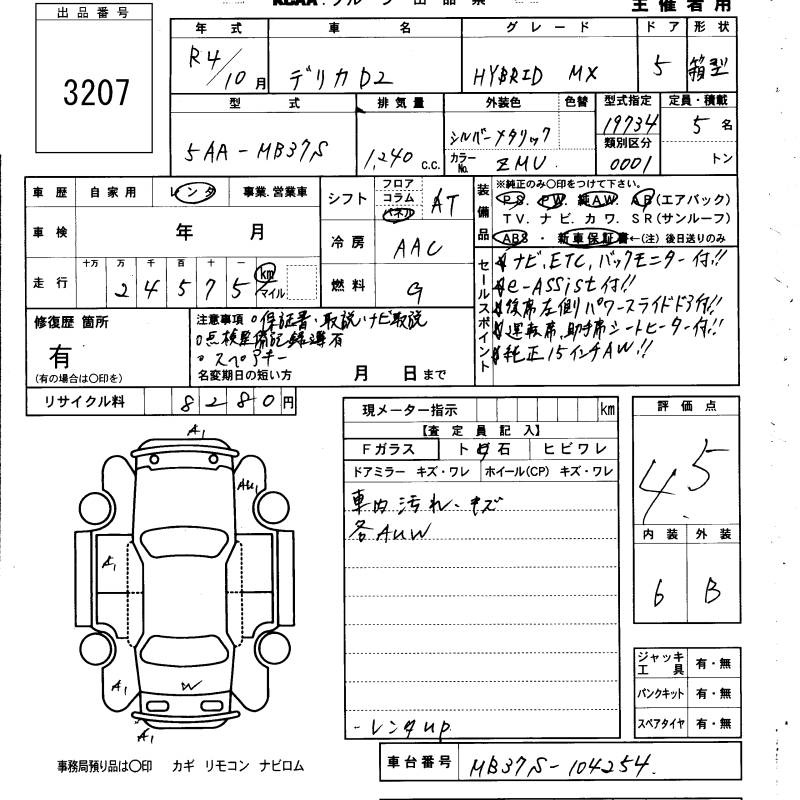 出品番号
3207
主催者用
年式 車名 グレード ドア 形状
R4/10月 デリカD2 HYBRID MX 5 箱型
型式 排気量 外装色 色替 型式指定 定員・積載
5AA-MB37S 1,240 c.c. シルバーメタリック 19734 5名
カラーNo. ZMU 類別区分 0001 トン
車歴 自家用 レンタ 事業.営業車
車検 年 月
走行 十万 万 千 百 十 一 km
24575 マイル
シフト フロア コラム パネル AT
冷房 AAC
燃料 G
装備品
※純正のみ〇印をつけて下さい。
PS. PW. 純AW. AB(エアバック)
TV. ナビ. カワ. SR(サンルーフ)
ABS ・ 新車保証書←(注) 後日送りのみ
セールスポイント
ナビ、ETC、バックモニター付!!
e-Assist付!!
後席左側パワースライドドア付!!
運転席、助手席シートヒーター付!!
純正15インチAW!!
修復歴 箇所
有
(有の場合は〇印を)
注意事項 ○保証書・取説・ナビ取説
○点検整備記録簿有
○スペアキー
名変期日の短い方 月 日まで
リサイクル料 8280円
現メーター指示 km
【査定員記入】
Fガラス トビ石 ヒビワレ
ドアミラー キズ・ワレ ホイール(CP) キズ・ワレ
車内汚れ・キズ
各AUW
-レンタup
評価点
4.5
内装 外装
6 B
A1
AU1
A1
A1
W
A1
ジャッキ工具 有・無
パンクキット 有・無
スペアタイヤ 有・無
事務局預り品は〇印 カギ リモコン ナビロム
車台番号 MB37S-104254.